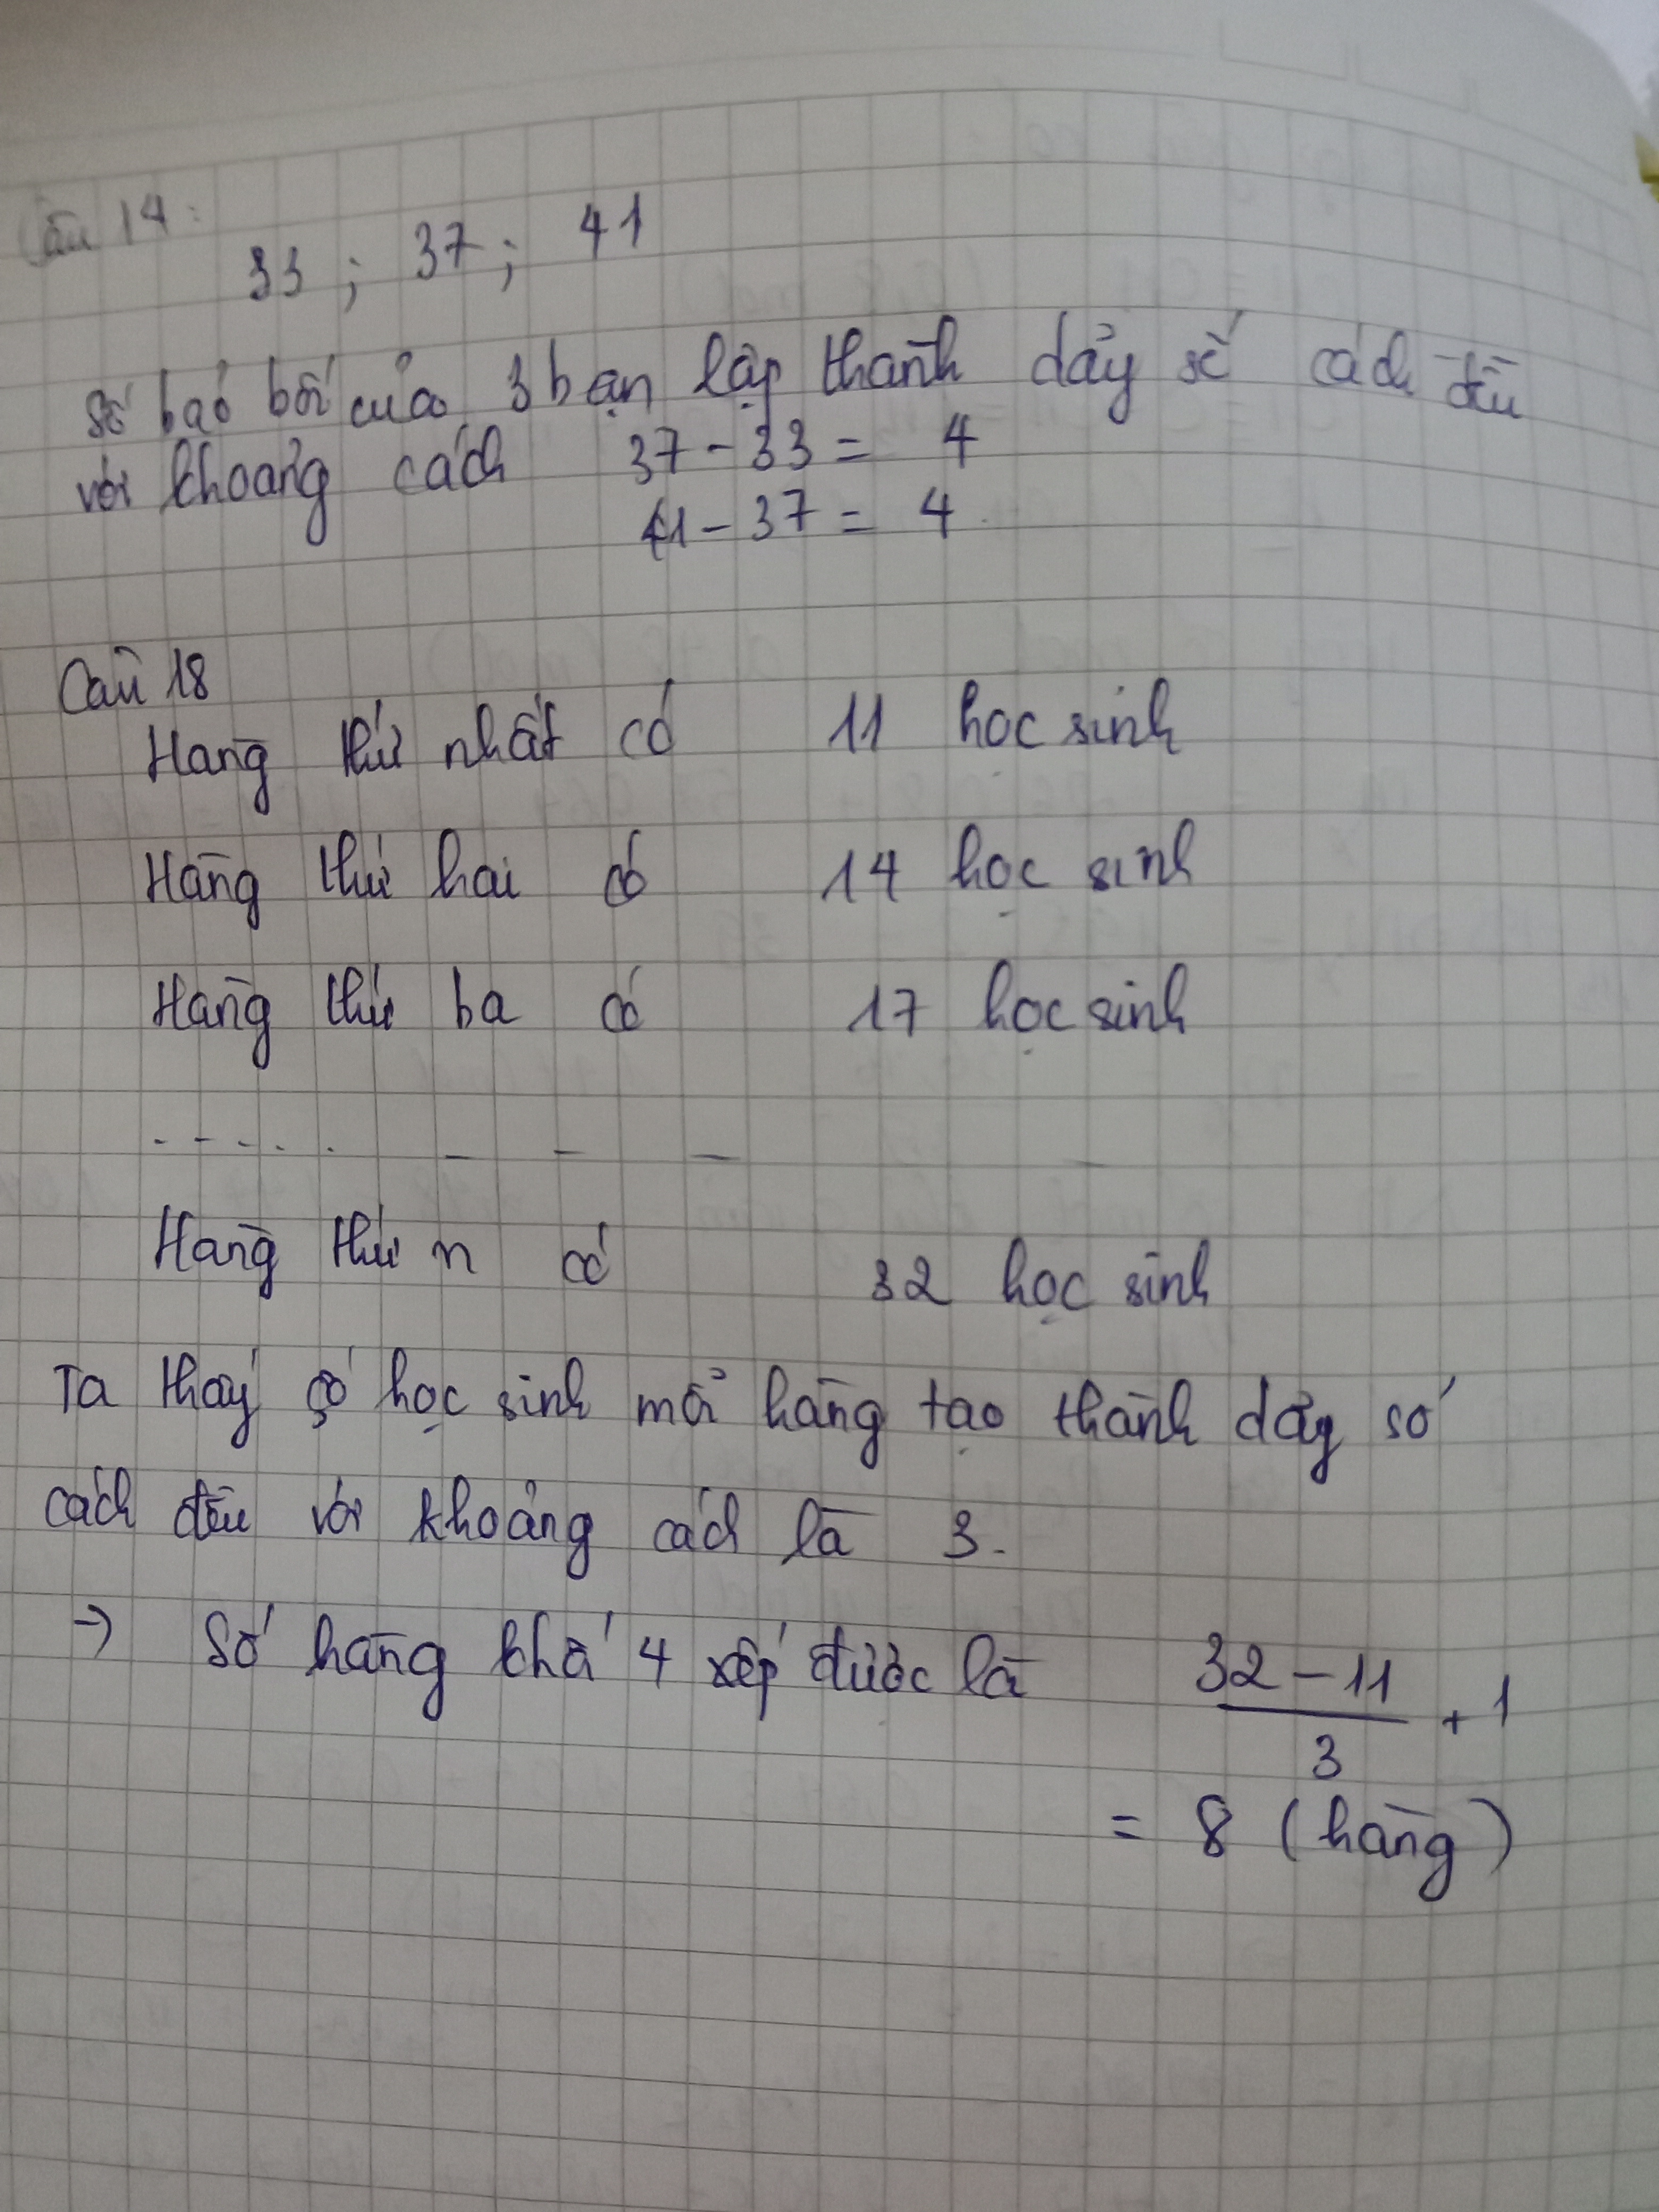 Câu 14:
33 ; 37 ; 41
Số báo bối của 3 bạn lập thành dãy số cách đều
với khoảng cách 37 - 33 = 4
41 - 37 = 4
Câu 18
Hàng thứ nhất có 11 học sinh
Hàng thứ hai có 14 học sinh
Hàng thứ ba có 17 học sinh
.....
Hàng thứ n có 32 học sinh
Ta thấy số học sinh mỗi hàng tạo thành dãy số
cách đều với khoảng cách là 3.
→ Số hàng khối 4 xếp được là (32 - 11)/3 + 1
= 8 (hàng)